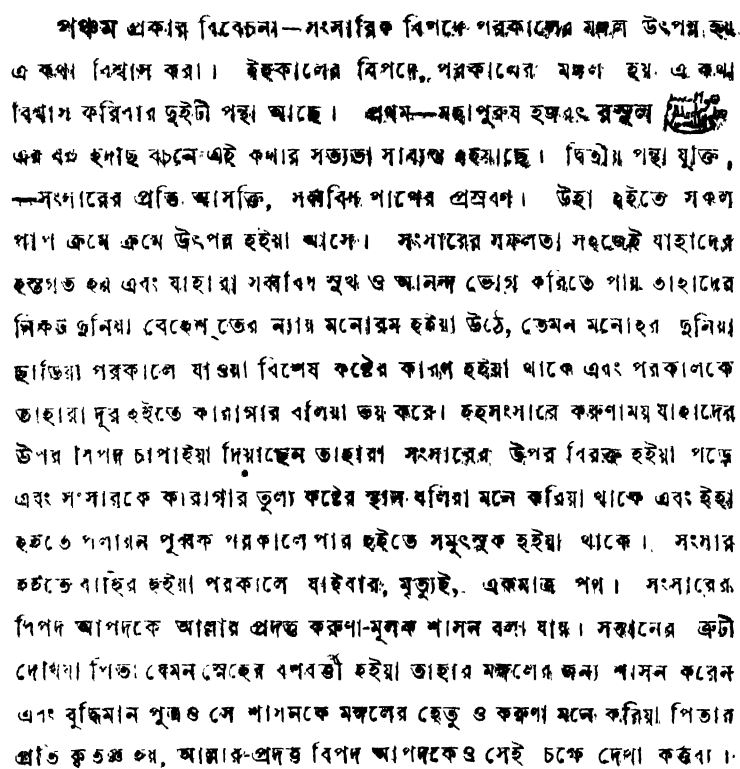 পঞ্চম প্রকার বিবেচনা—সংসারিক বিপদে পরকালের মঙ্গল উৎপন্ন হয়
এ কথা বিশ্বাস করা। ইহকালের বিপদে, পরকালের মঙ্গল হয় এ কথা
বিশ্বাস করিবার দুইটী পন্থা আছে। প্রথম—মহাপুরুষ হজরৎ রসুল
এর বহু হদীছ বচনে এই কথার সত্যতা সাব্যস্ত হইয়াছে। দ্বিতীয় পন্থা যুক্তি,
—সংসারের প্রতি আসক্তি, সর্ব্ববিধ পাপের প্রস্রবণ। উহা হইতে সকল
পাপ ক্রমে ক্রমে উৎপন্ন হইয়া আসে। সংসারের সফলতা সহজেই যাহাদের
হস্তগত হয় এবং যাহারা সর্ব্ববিধ সুখ ও আনন্দ ভোগ করিতে পায় তাহাদের
নিকট দুনিয়া বেহেশ্‌তের ন্যায় মনোরম হইয়া উঠে, তেমন মনোহর দুনিয়া
ছাড়িয়া পরকালে যাওয়া বিশেষ কষ্টের কারণ হইয়া থাকে এবং পরকালকে
তাহারা দূর হইতে কারাগার বলিয়া ভয় করে। ইহসংসারে করুণাময় যাহাদের
উপর বিপদ চাপাইয়া দিয়াছেন তাহারা সংসারের উপর বিরক্ত হইয়া পড়ে
এবং সংসারকে কারাগার তুল্য কষ্টের স্থান বলিয়া মনে করিয়া থাকে এবং ইহা
হইতে পলায়ন পূর্ব্বক পরকালে পার হইতে সমুৎসুক হইয়া থাকে। সংসার
হইতে বাহির হইয়া পরকালে যাইবার, মৃত্যুই, একমাত্র পথ। সংসারের
বিপদ আপদকে আল্লার প্রদত্ত করুণা-মূলক শাসন বলা যায়। সন্তানের ত্রুটী
দেখিয়া পিতা যেমন স্নেহের বশবর্ত্তী হইয়া তাহার মঙ্গলের জন্য শাসন করেন
এবং বুদ্ধিমান পুত্রও সে শাসনকে মঙ্গলের হেতু ও করুণা মনে করিয়া পিতার
প্রতি কৃতজ্ঞ হয়, আল্লার-প্রদত্ত বিপদ আপদকেও সেই চক্ষে দেখা কর্ত্তব্য।